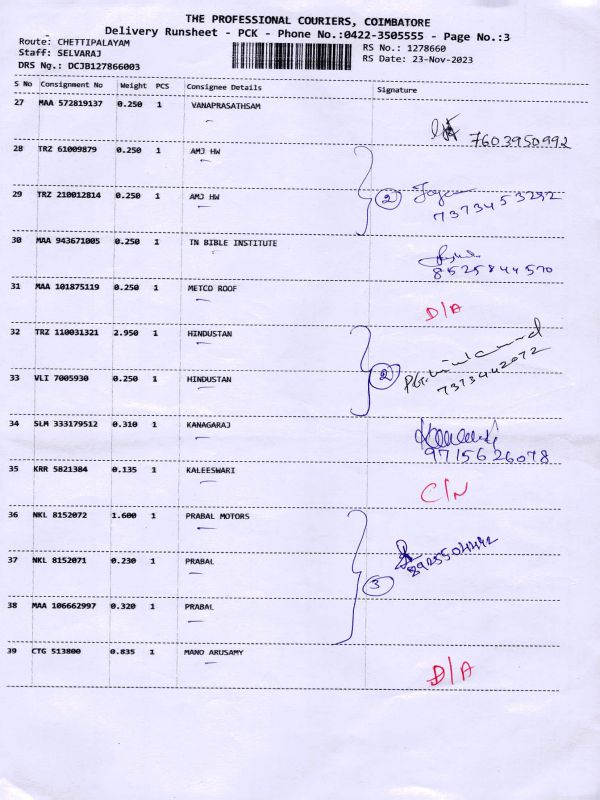 THE PROFESSIONAL COURIERS, COIMBATORE
Delivery Runsheet - PCK - Phone No.:0422-3505555 - Page No.:3
Route: CHETTIPALAYAM
Staff: SELVARAJ
DRS Ng.: DCJB127866003
RS No.: 1278660
RS Date: 23-Nov-2023
S No Consignment No Weight PCS Consignee Details Signature
27 MAA 572819137 0.250 1 VANAPRASATHSAM
7603950992
28 TRZ 61009879 0.250 1 AMJ HW
29 TRZ 210012814 0.250 1 AMJ HW
2
7373453292
30 MAA 943671005 0.250 1 TN BIBLE INSTITUTE
8525844570
31 MAA 101875119 0.250 1 METCO ROOF
D/A
32 TRZ 110031321 2.950 1 HINDUSTAN
33 VLI 7005930 0.250 1 HINDUSTAN
2
7373442072
34 SLM 333179512 0.310 1 KANAGARAJ
9715626078
35 KRR 5821384 0.135 1 KALEESWARI
C/N
36 NKL 8152072 1.600 1 PRABAL MOTORS
37 NKL 8152071 0.230 1 PRABAL
3
38 MAA 106662997 0.320 1 PRABAL
39 CTG 513800 0.835 1 MANO ARUSAMY
D/A